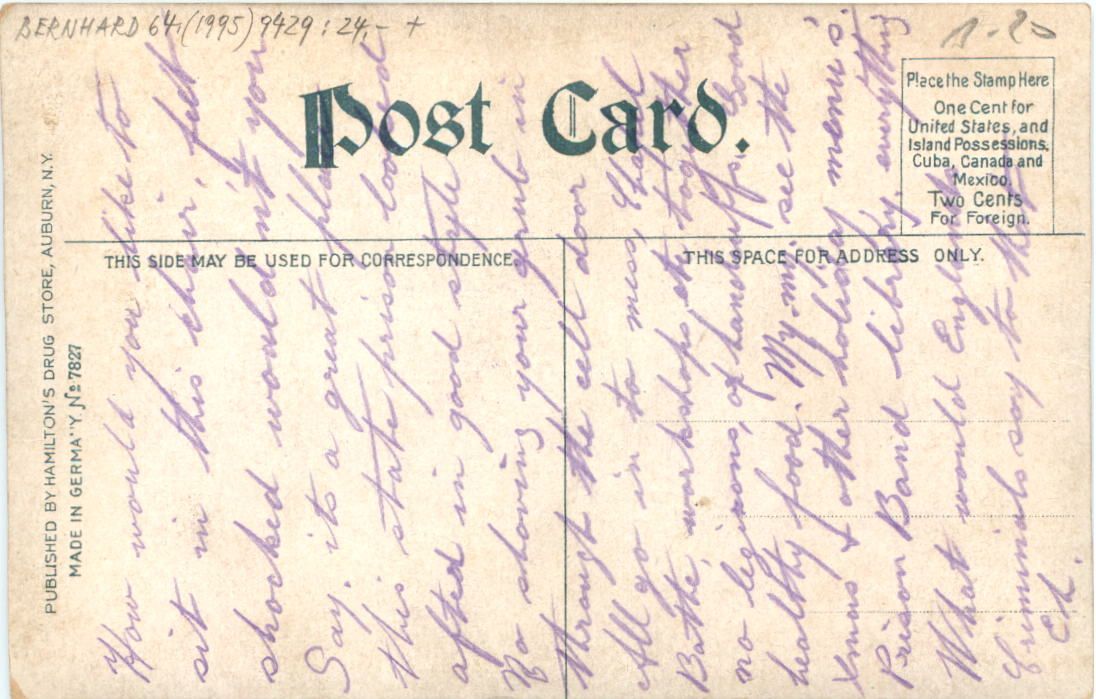 BERNHARD 64,(1995) 9429 : 24,- +
Post Card.
Place the Stamp Here
One Cent for
United States, and
Island Possessions,
Cuba, Canada and
Mexico.
Two Cents
For Foreign.
THIS SIDE MAY BE USED FOR CORRESPONDENCE.
THIS SPACE FOR ADDRESS ONLY.
PUBLISHED BY HAMILTON'S DRUG STORE, AUBURN, N.Y.
MADE IN GERMANY. No 7827
How would you like to
sit in this chair, felt
shocked wouldn't you
Say, its a great place
this state prison looked
after in good style
No shoving your grub in
through the cell door
All go in to mess, Chapel
Bathe, workshops etc together
no leg irons, or handcuffs, Good
healthy food. My-my see the
Xmas & other holiday menu's
Prison Band library, everything
What would England's
Criminals say to that
Ed.